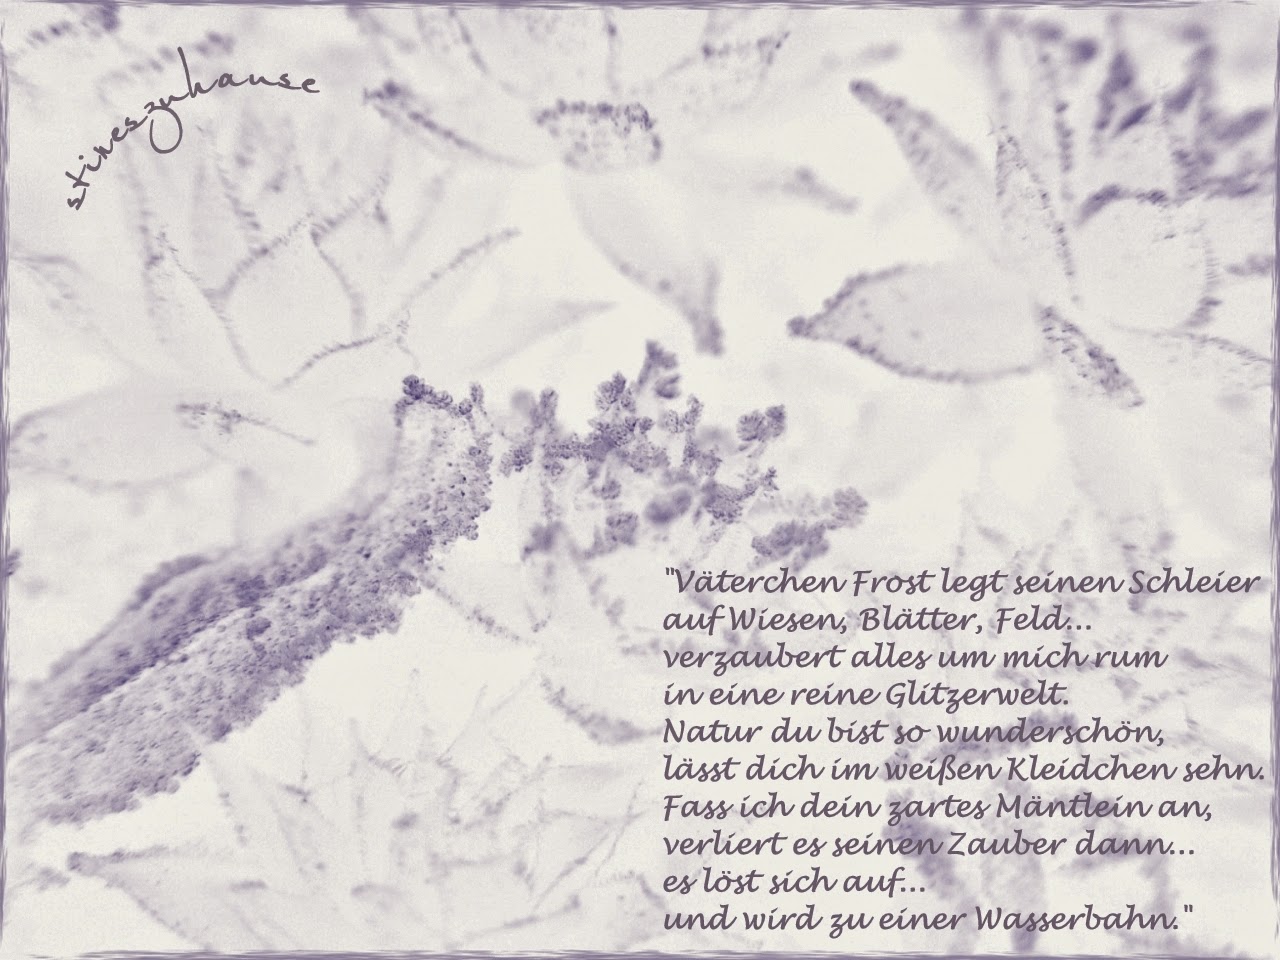 stineszuhause
"Väterchen Frost legt seinen Schleier
auf Wiesen, Blätter, Feld...
verzaubert alles um mich rum
in eine reine Glitzerwelt.
Natur du bist so wunderschön,
lässt dich im weißen Kleidchen sehn.
Fass ich dein zartes Mäntlein an,
verliert es seinen Zauber dann...
es löst sich auf...
und wird zu einer Wasserbahn."